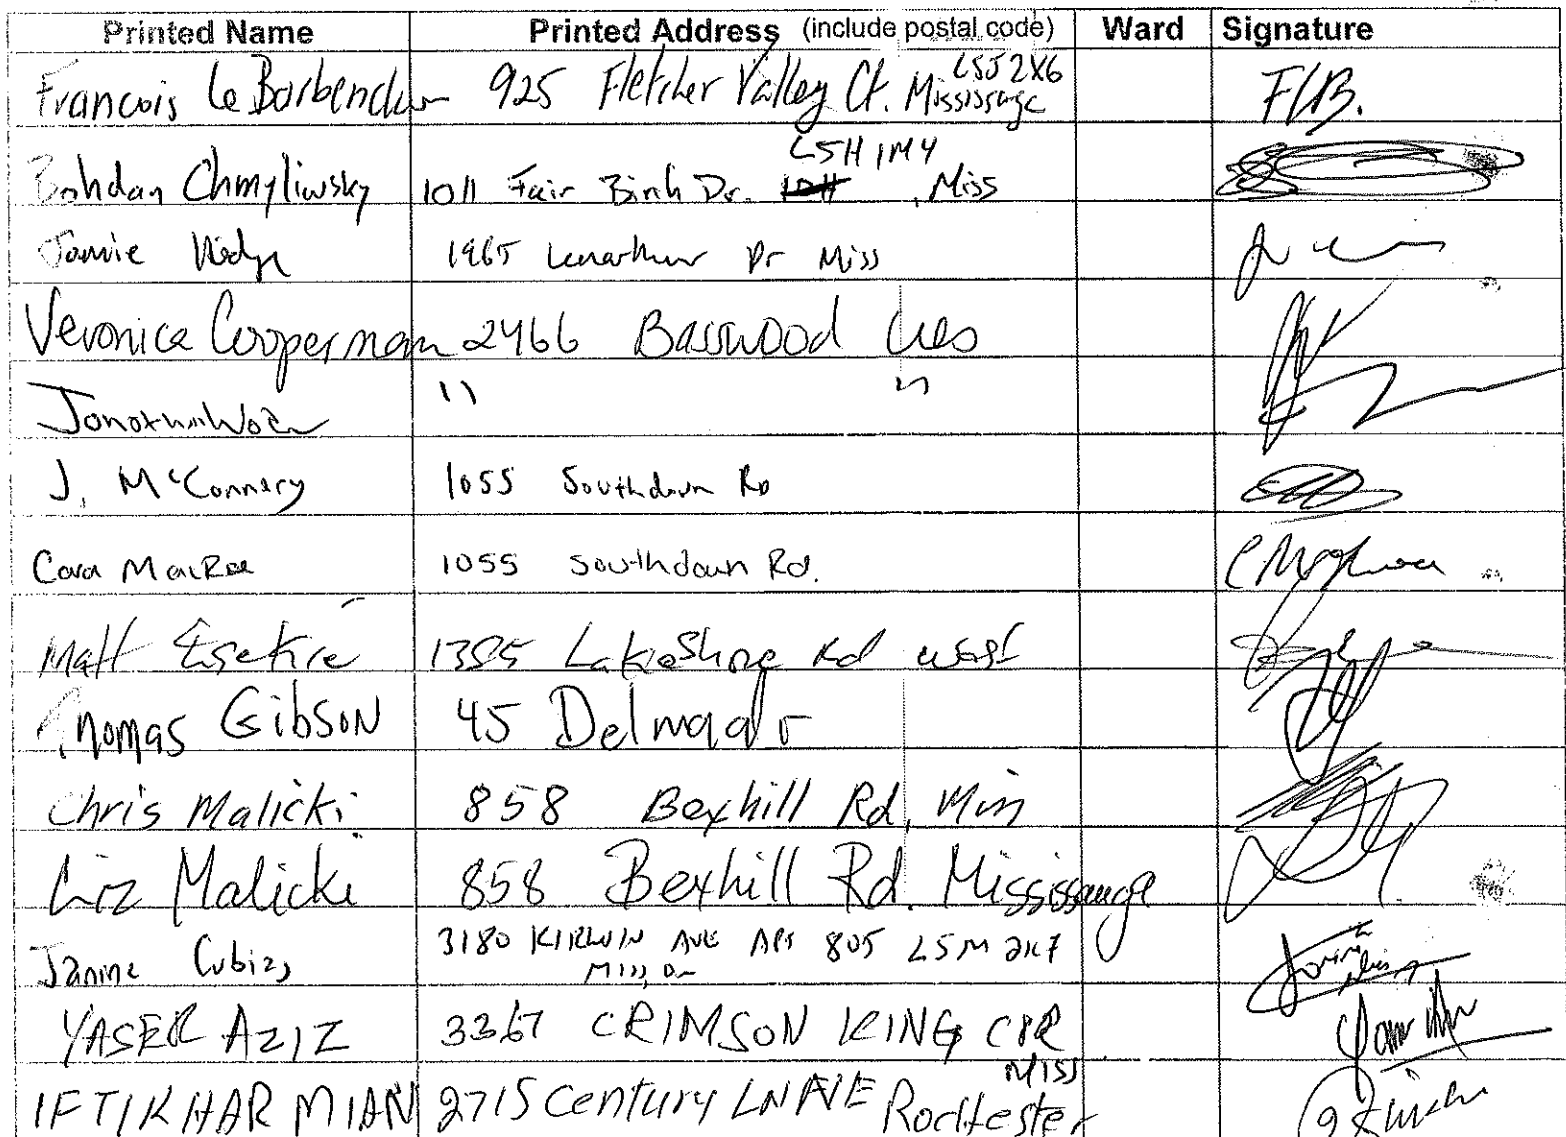 Printed Name Printed Address (include postal code) Ward Signature
Francois 925 Fletcher Valley Ct. Mississauga L5J 2X6 FLB.
L5H 1M4
Bohdan Chmyliwsky 1011 Fair Birch Dr. , Miss
Jamie 1965 Dr Miss
Veronica Cooperman 2466 Basswood Cres
Jonathan " "
J. McConnery 1055 Southdown Rd
Cara MacRae 1055 Southdown Rd.
Matt 1385 Lakeshore Rd west
Thomas Gibson 45
Chris Malicki 858 Bexhill Rd, Miss
Liz Malicki 858 Bexhill Rd. Mississauga
Janine 3180 KIRWIN AVE APT 805 L5M 2K7
Miss, On
YASER AZIZ 3367 CRIMSON KING CIR
MISS
IFTIKHAR MIAN 2715 Century LN NE Rochester